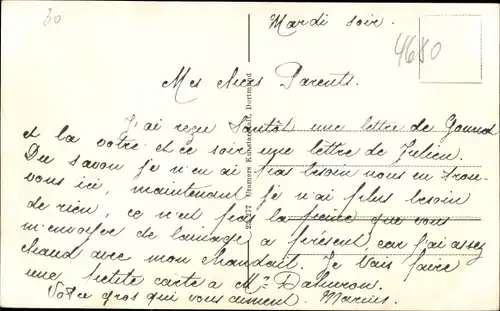 30
Mardi soir.
4680
Mes Chers Parents.
J'ai reçu tantôt une lettre de Gounod
et la votre et ce soir une lettre de Julien.
Du savon je n'en ai pas besoin nous en trou-
vons ici, maintenant je n'ai plus besoin
de rien, ce n'est pas la peine que vous
m'envoyiez de lainage a présent, car j'ai assez
chaud avec mon chandail. Je vais faire
une petite carte a Mr
Votre gros qui vous aiment. Marius.
22 277 Cramers Kunstanstalt, Dortmund